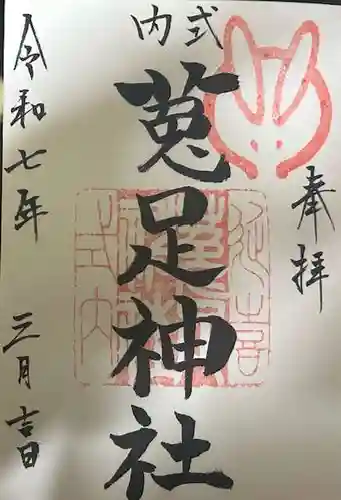 奉拝
式内
菟足神社
令和七年 三月 吉日
延喜
式内